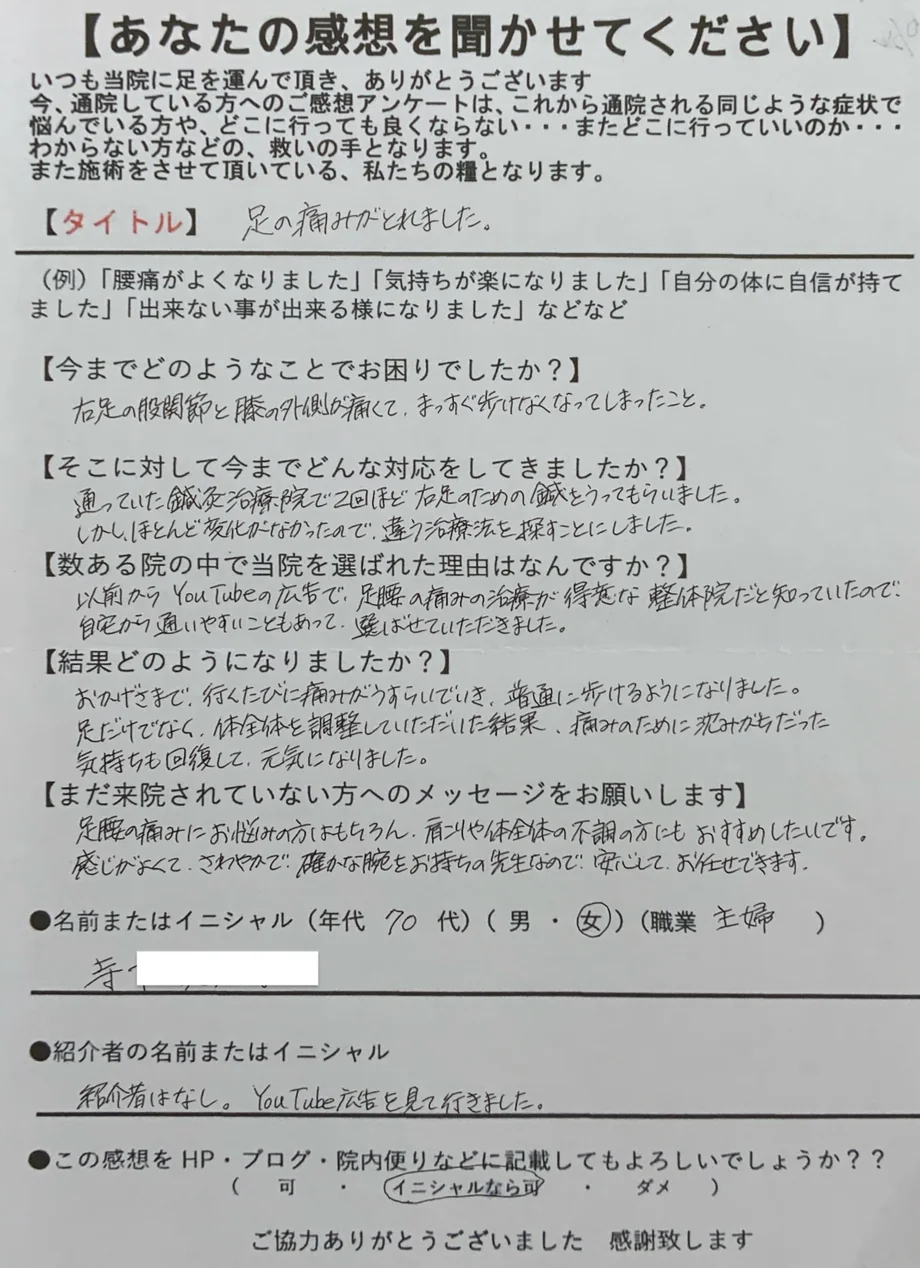 【あなたの感想を聞かせてください】
いつも当院に足を運んで頂き、ありがとうございます
今、通院している方へのご感想アンケートは、これから通院される同じような症状で
悩んでいる方や、どこに行っても良くならない・・・またどこに行っていいのか・・・
わからない方などの、救いの手となります。
また施術をさせて頂いている、私たちの糧となります。
【タイトル】 足の痛みがとれました。
（例）「腰痛がよくなりました」「気持ちが楽になりました」「自分の体に自信が持て
ました」「出来ない事が出来る様になりました」などなど
【今までどのようなことでお困りでしたか？】
右足の股関節と膝の外側が痛くて、まっすぐ歩けなくなってしまったこと。
【そこに対して今までどんな対応をしてきましたか？】
通っていた鍼灸治療院で2回ほど右足のための鍼をうってもらいました。
しかし、ほとんど変化がなかったので、違う治療法を探すことにしました。
【数ある院の中で当院を選ばれた理由はなんですか？】
以前からYouTubeの広告で、足腰の痛みの治療が得意な整体院だと知っていたので、
自宅から通いやすいこともあって、選ばせていただきました。
【結果どのようになりましたか？】
おかげさまで、行くたびに痛みがうすらいでいき、普通に歩けるようになりました。
足だけでなく、体全体を調整していただいた結果、痛みのために沈みがちだった
気持ちも回復して、元気になりました。
【まだ来院されていない方へのメッセージをお願いします】
足腰の痛みにお悩みの方はもちろん、肩こりや体全体の不調の方にもおすすめしたいです。
感じがよくて、さわやかで、確かな腕をお持ちの先生なので、安心して、お任せできます。
●名前またはイニシャル（年代 70 代）（ 男 ・ 女 ）（職業 主婦 ）
寺
●紹介者の名前またはイニシャル
紹介者はなし。YouTube広告を見て行きました。
●この感想を HP・ブログ・院内便りなどに記載してもよろしいでしょうか？？
（ 可 ・ イニシャルなら可 ・ ダメ ）
ご協力ありがとうございました 感謝致します